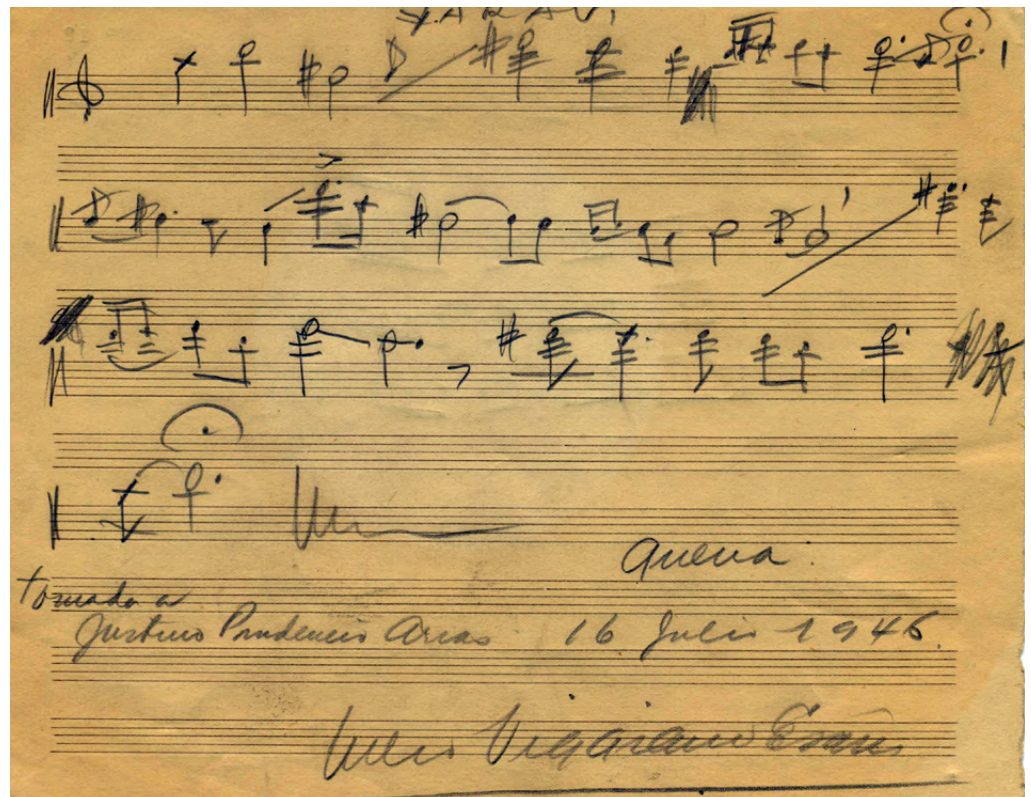 YARAVI
quena.
tomada a
Justino Prudencio Arias 16 Julio 1946.
Julio Viggiano Esain